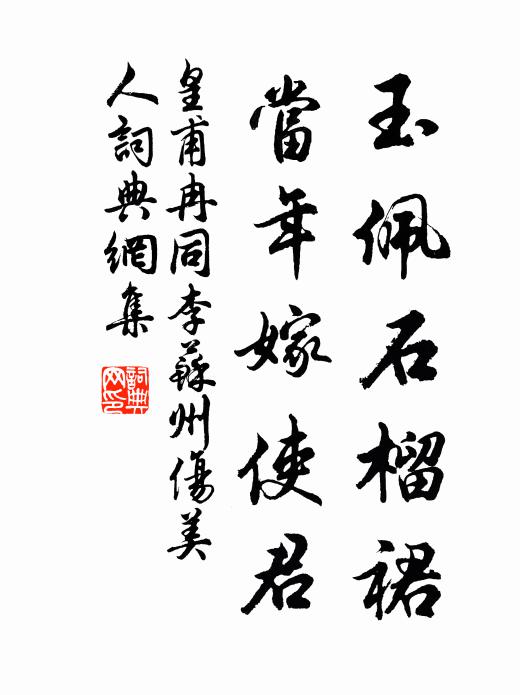 玉佩石榴裙
當年嫁使君
皇甫冉同李蘇州傷美
人詞典網集
詞典
网印